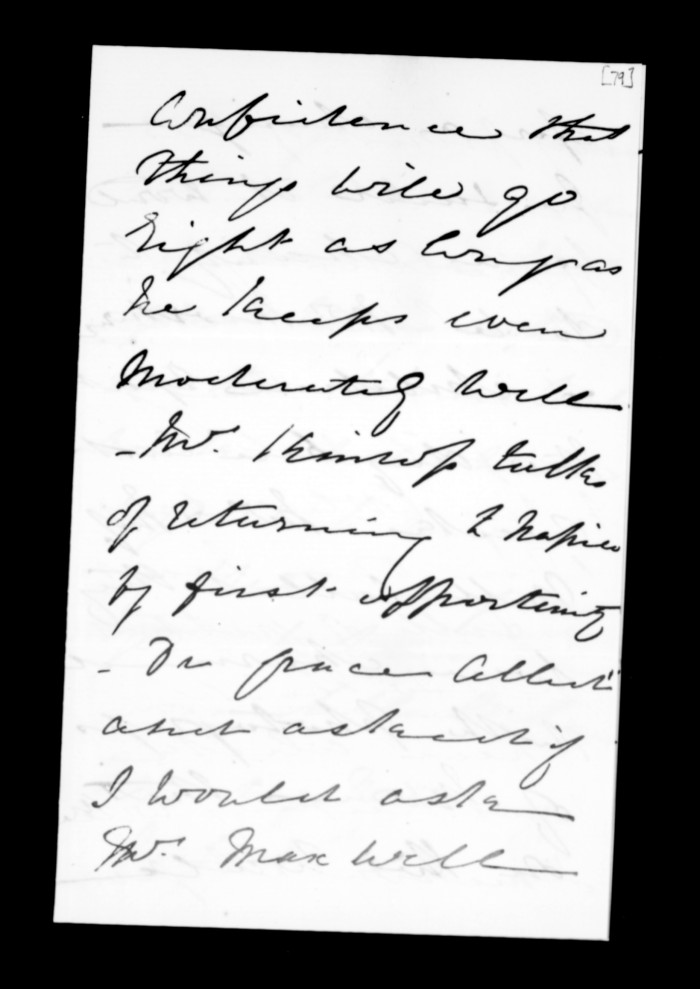 [79]
Confidence that
things will go
right as long as
he keeps even
Moderately well
- Mr. Kinross talks
of returning to Napier
by first opportunity
- Dr Grace called
and asked if
I would ask
Mr. Maxwell